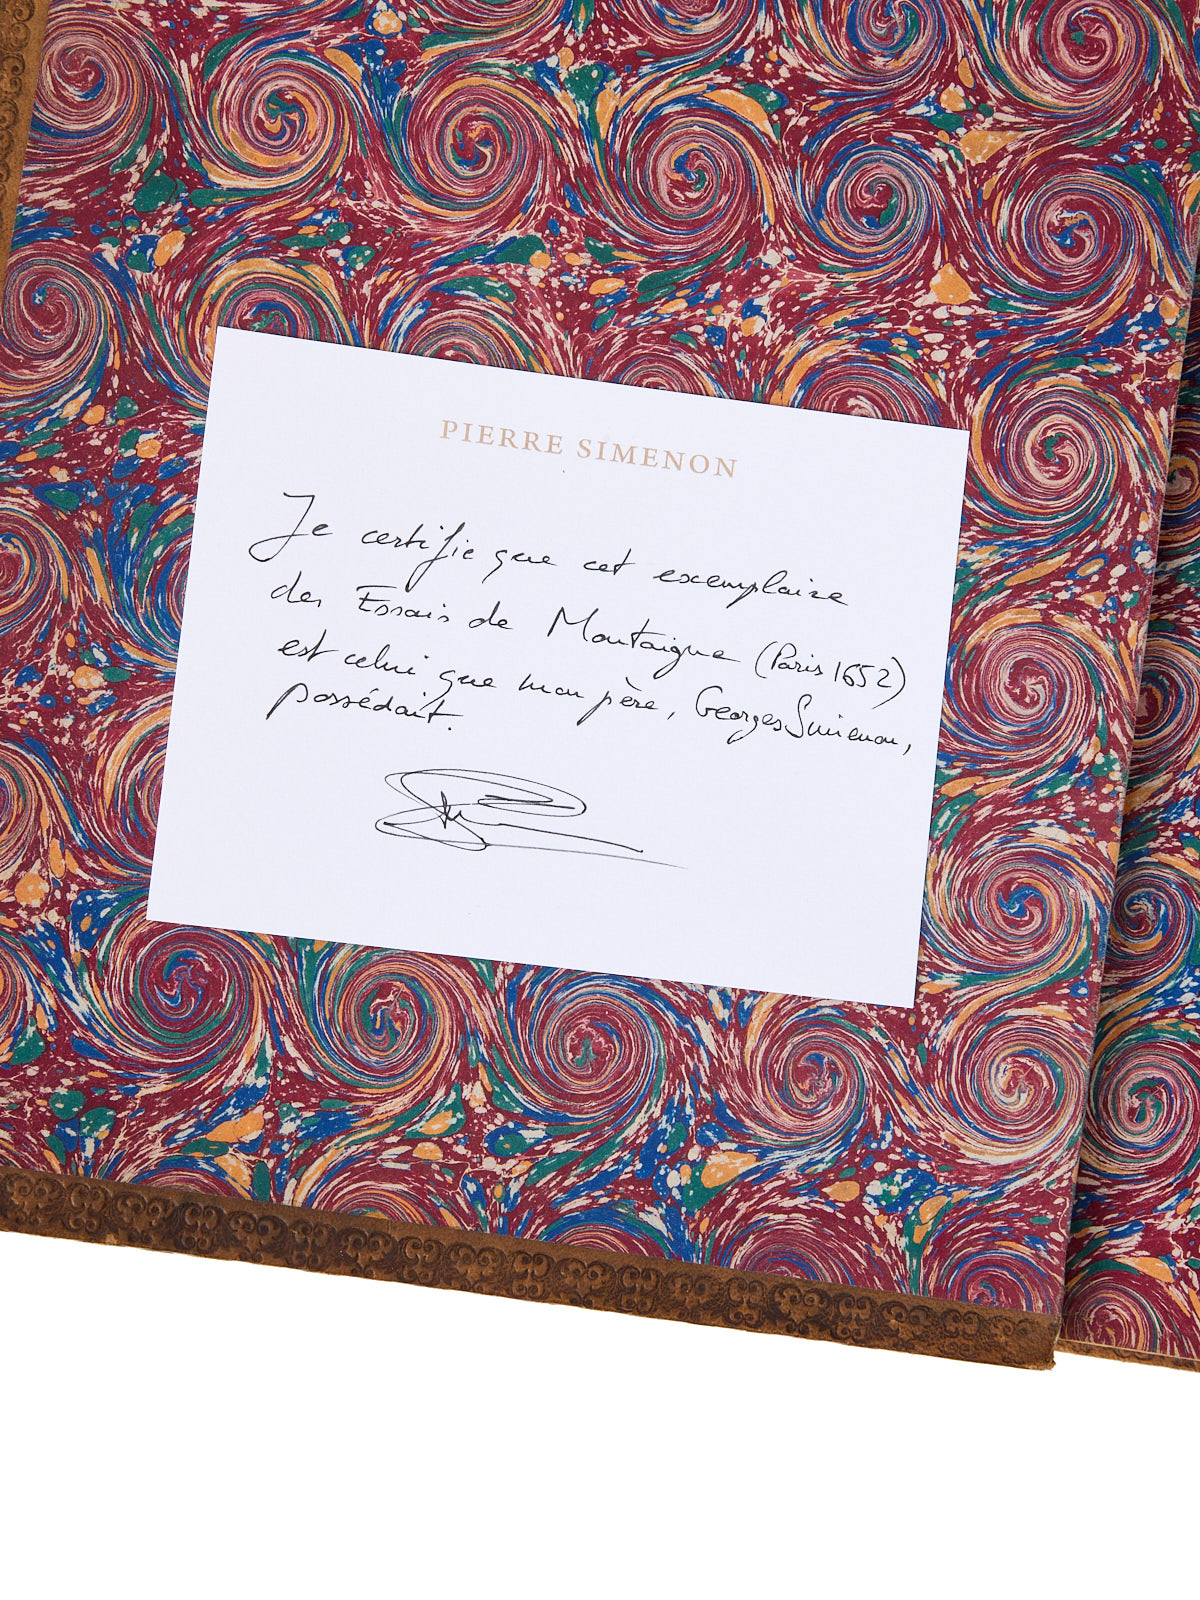 PIERRE SIMENON
Je certifie que cet exemplaire
des Essais de Montaigne (Paris 1652)
est celui que mon père, Georges Simenon,
possédait.